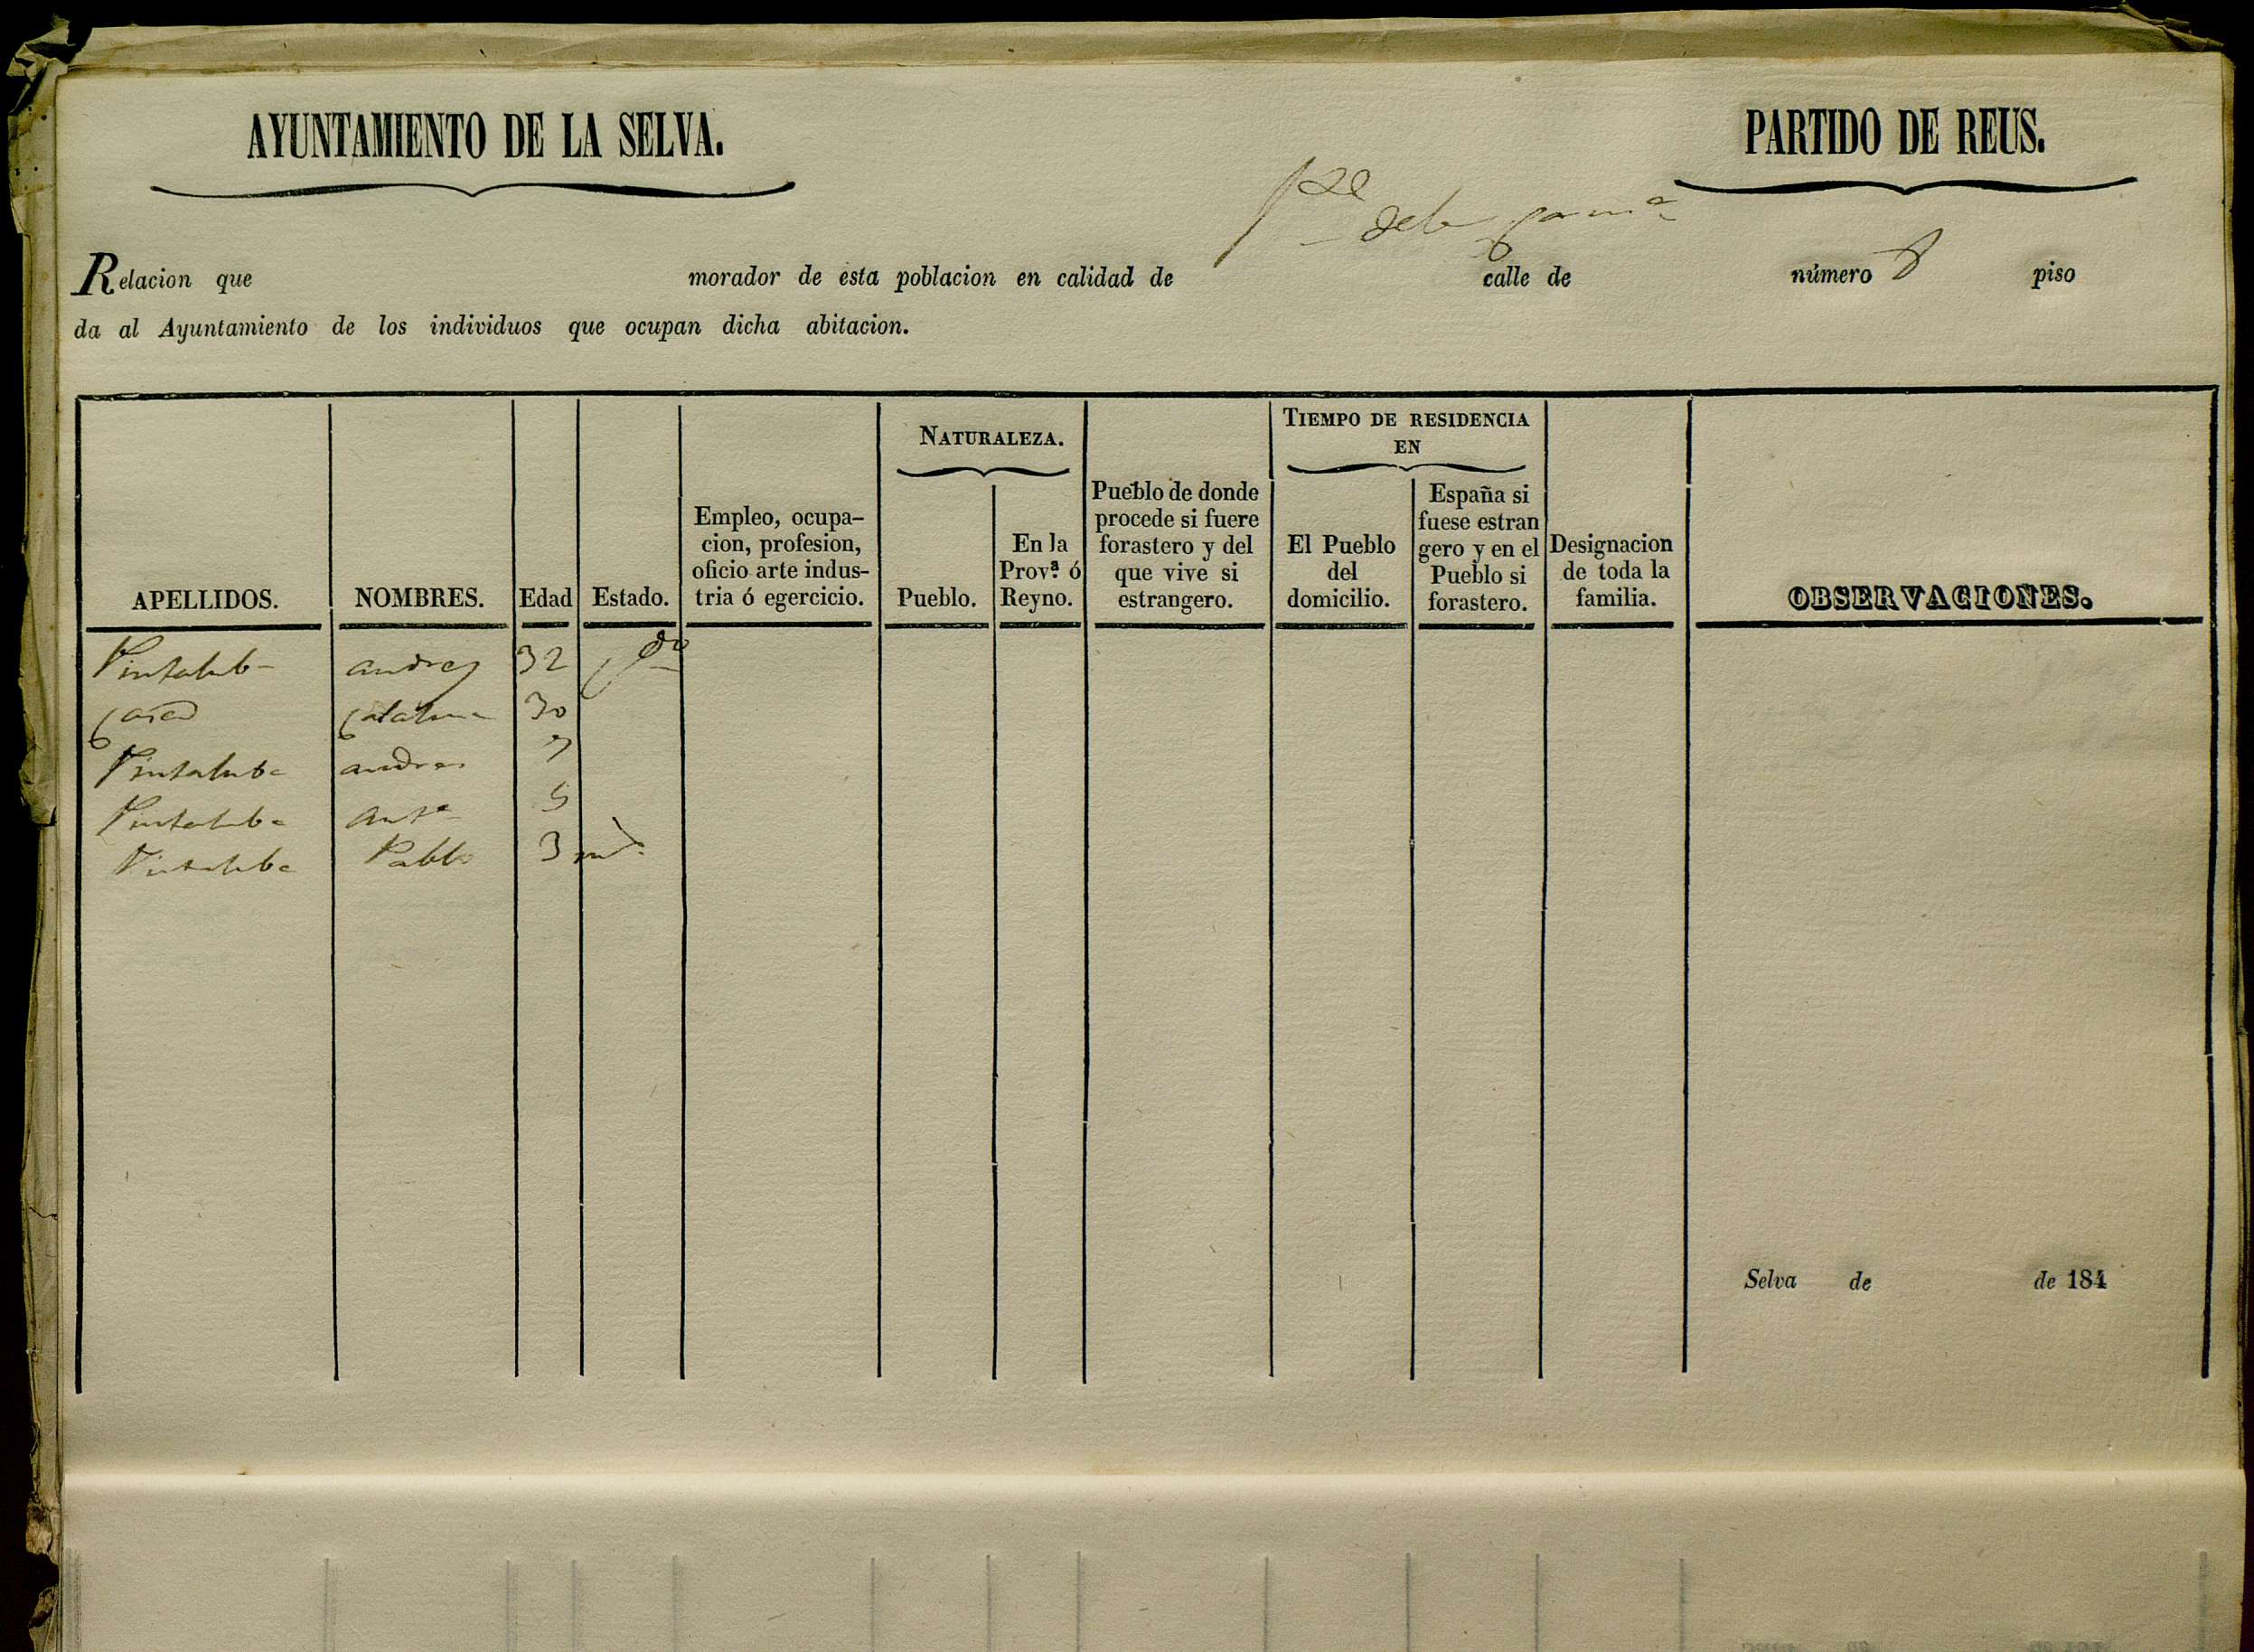 AYUNTAMIENTO DE LA SELVA.
PARTIDO DE REUS.
Relacion que morador de esta poblacion en calidad de calle de número 8 piso
da al Ayuntamiento de los individuos que ocupan dicha abitacion.
NATURALEZA.
TIEMPO DE RESIDENCIA
EN
APELLIDOS.
NOMBRES.
Edad
Estado.
Empleo, ocupa-
cion, profesion,
oficio arte indus-
tria ó egercicio.
Pueblo.
En la
Prov.ª ó
Reyno.
Pueblo de donde
procede si fuere
forastero y del
que vive si
estrangero.
El Pueblo
del
domicilio.
España si
fuese estran
gero y en el
Pueblo si
forastero.
Designacion
de toda la
familia.
OBSERVACIONES.
andres 32
30
Pintaluba andres 7
Pintaluba 5
Pintaluba Pablo 3
Selva de de 184